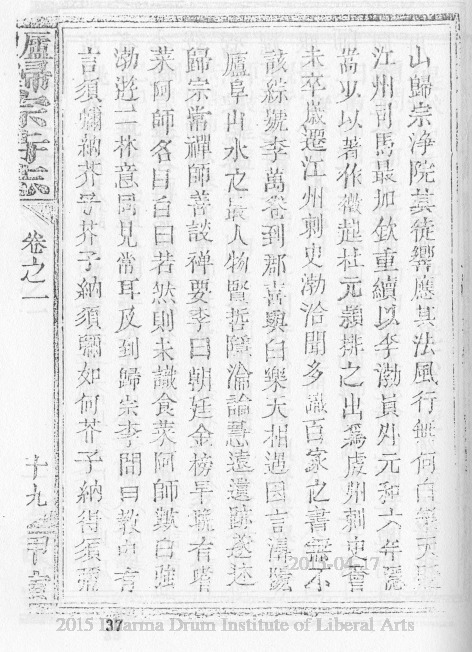 山歸宗淨院其徒響應其法風行無何白樂天貶
江州司馬最加欽重續以李渤員外元和六年隱
嵩少以著作徵起杜元穎排之出爲虔州刺史會
未卒歲遷江州刺史渤洽聞多識百家之書無不
該綜號李萬卷到郡喜與白樂天相遇因言潯陽
廬阜山水之最人物賢哲隱淪論慧遠遺跡遂述
歸宗常禪師善談禪要李曰朝廷金榜早晚有嗜
菜阿師名目白曰若然則未識食菜阿師歟白強
渤遊二林意同見常耳及到歸宗李問曰教中有
言須彌納芥子芥子納須彌如何芥子納得須彌
廬歸宗寺志
卷之一
十九
2015-04-17
137
2015 Dharma Drum Institute of Liberal Arts